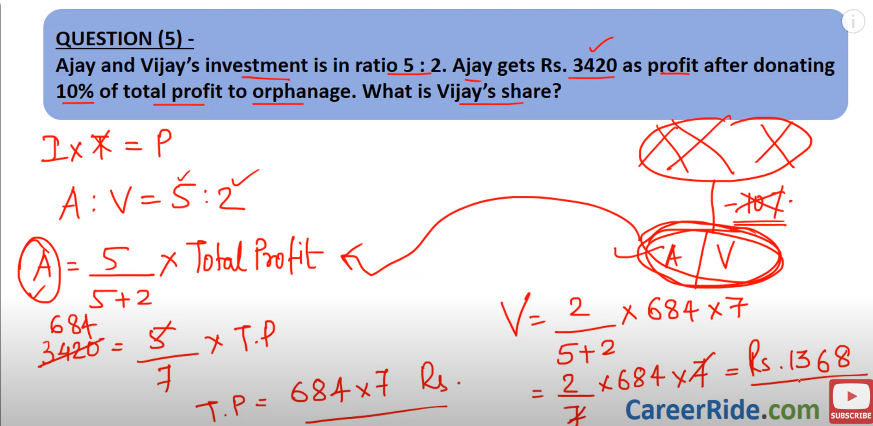 QUESTION (5) -
Ajay and Vijay's investment is in ratio 5 : 2. Ajay gets Rs. 3420 as profit after donating
10% of total profit to orphanage. What is Vijay's share?
I x T = P
A : V = 5 : 2
A = 5/5+2 x Total Profit
684
3420 = 5/7 x T.P
T.P = 684x7 Rs.
-10%.
A | V
V = 2/5+2 x 684 x 7
= 2/7 x 684 x 7 = Rs. 1368
CareerRide.com
SUBSCRIBE
i